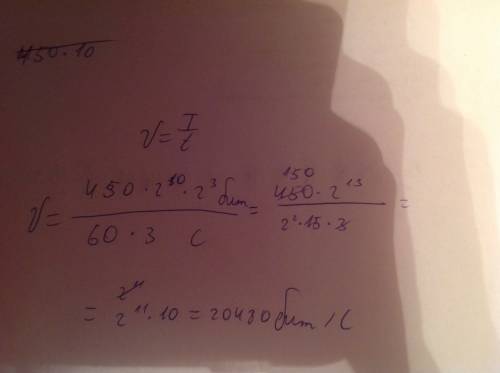 450·10
v = I/t
v = 450·2^10·2^3 бит / 60·3 с = 150 450·2^13 / 2^2·15·3 =
= 2^11·10 = 20480 бит/с